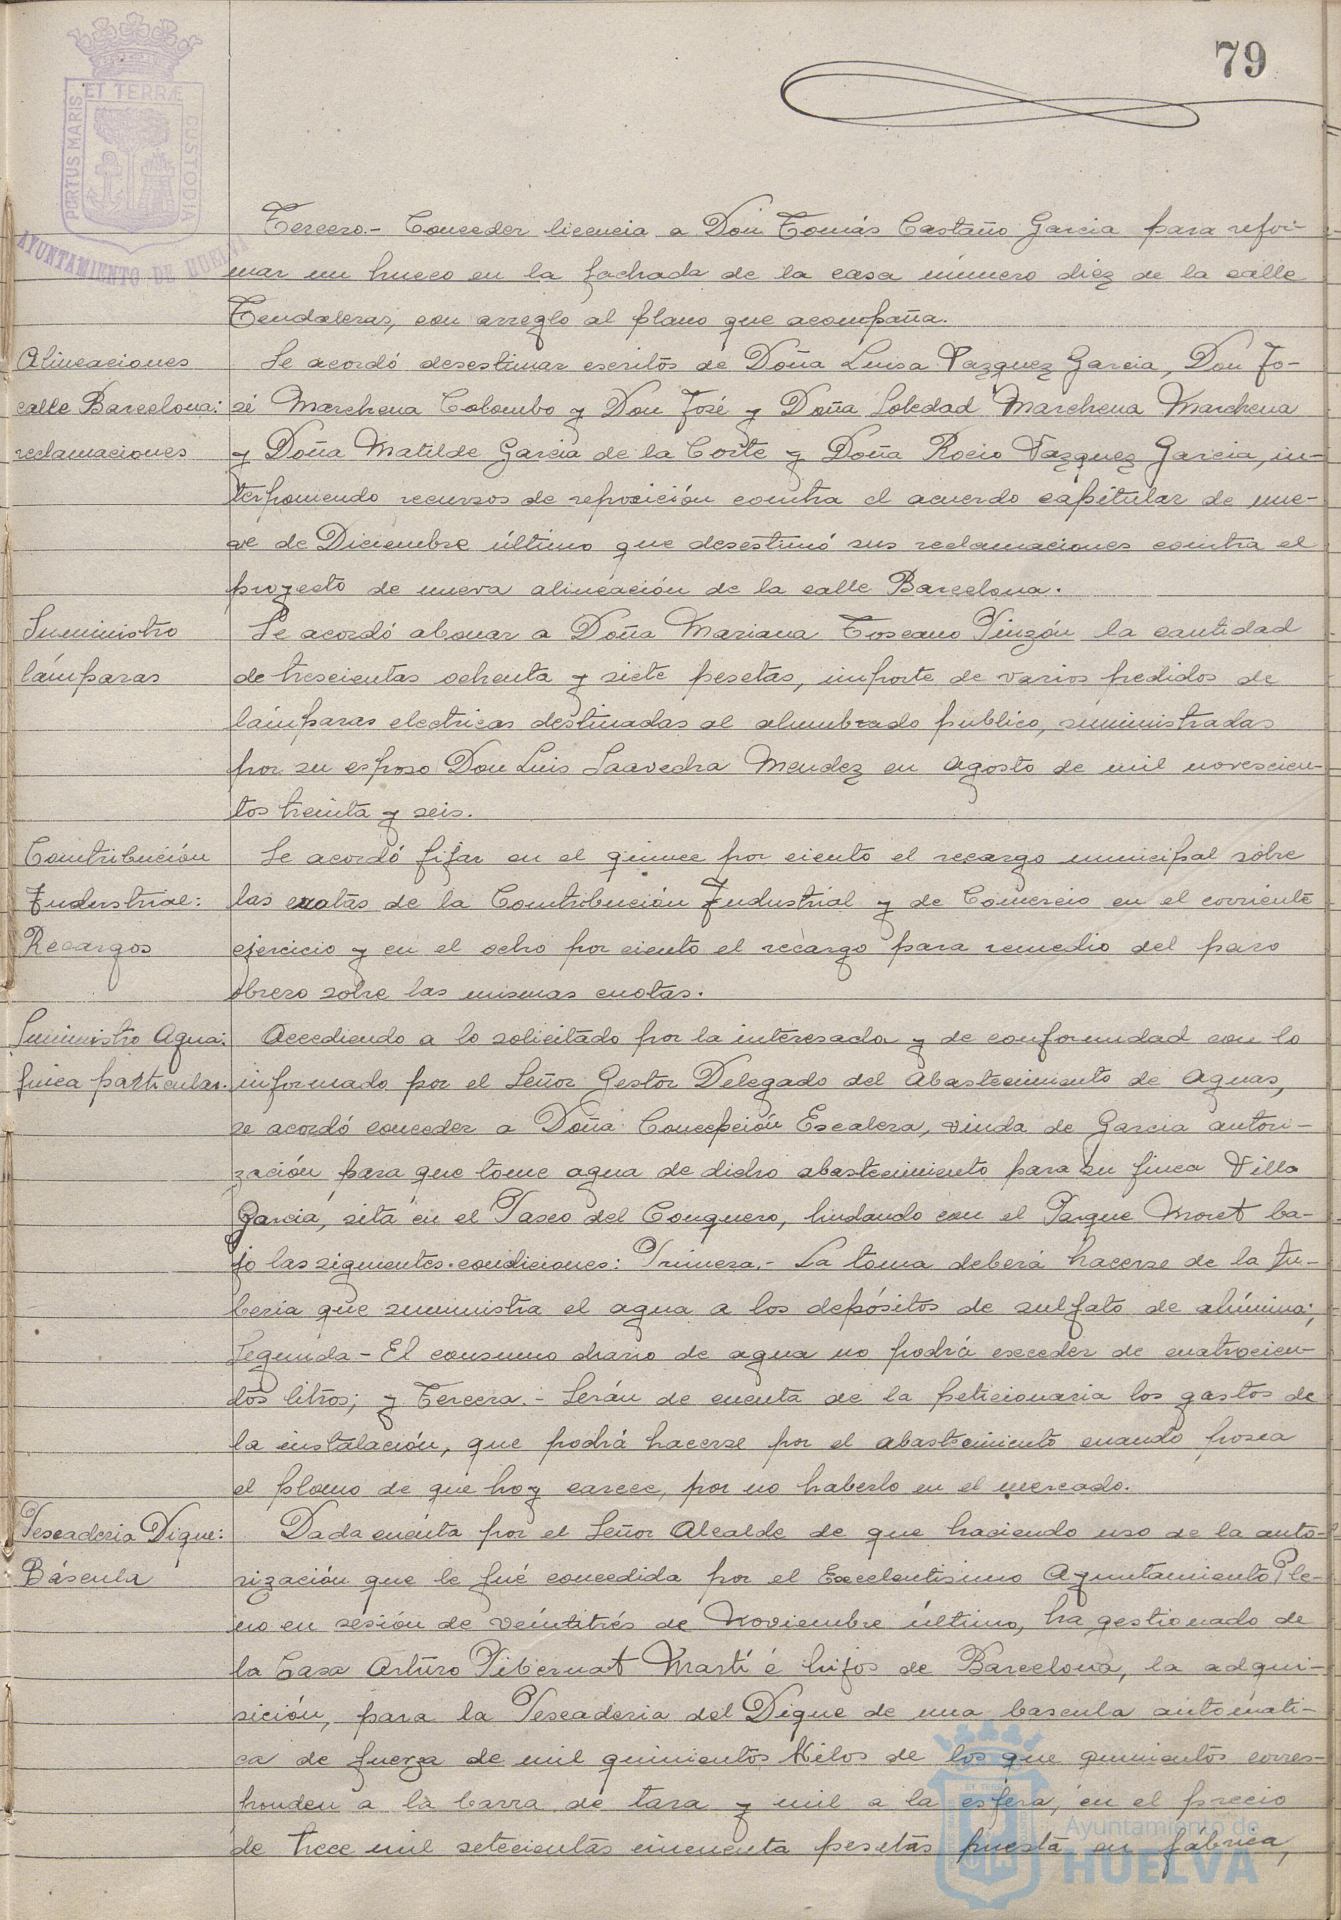 79
PORTUS MARIS ET TERRÆ CUSTODIA
AYUNTAMIENTO DE HUELVA
Tercero.- Conceder licencia a Don Tomás Castaño Garcia para refor-
mar un hueco en la fachada de la casa número diez de la calle
Tendaleras, con arreglo al plano que acompaña.
Alineaciones
calle Barcelona:
reclamaciones
Se acordó desestimar escritos de Doña Luisa Vazquez Garcia, Don Jo-
sé Marchena Colombo y Don José y Doña Soledad Marchena Marchena
y Doña Matilde Garcia de la Corte y Doña Rocio Vazquez Garcia, in-
terponiendo recursos de reposición contra el acuerdo capitular de nue-
ve de Diciembre último que desestimó sus reclamaciones contra el
proyecto de nueva alineación de la calle Barcelona.
Suministro
lámparas
Se acordó abonar a Doña Mariana Toscano Pinzón la cantidad
de trescientas ochenta y siete pesetas, importe de varios pedidos de
lámparas electricas destinadas al alumbrado publico, suministradas
por su esposo Don Luis Saavedra Mendez en Agosto de mil novescien-
tos treinta y seis.
Contribución
Industrial:
Recargos
Se acordó fijar en el quince por ciento el recargo municipal sobre
las cuotas de la Contribución Industrial y de Comercio en el corriente
ejercicio y en el ocho por ciento el recargo para remedio del paro
obrero sobre las mismas cuotas.
Suministro Agua:
finca particular.
Accediendo a lo solicitado por la interesada y de conformidad con lo
informado por el Señor Gestor Delegado del Abastecimiento de Aguas,
se acordó conceder a Doña Concepción Escalera, viuda de Garcia autori-
zación para que tome agua de dicho abastecimiento para su finca Villa
Garcia, sita en el Paseo del Conquero, lindando con el Parque Moret ba-
jo las siguientes condiciones: Primera.- La toma deberá hacerse de la tu-
beria que suministra el agua a los depósitos de sulfato de alúmina;
Segunda - El consumo diario de agua no podrá exceder de cuatrocien-
tos litros; y Tercera.- Serán de cuenta de la peticionaria los gastos de
la instalación, que podrá hacerse por el abastecimiento cuando posea
el plomo de que hoy carece, por no haberlo en el mercado.
Pescaderia Dique:
Báscula
Dada cuenta por el Señor Alcalde de que haciendo uso de la auto-
rización que le fué concedida por el Excelentisimo Ayuntamiento Ple-
no en sesión de veintitrés de Noviembre último, ha gestionado de
la Casa Arturo Pibernat Martí é hijos de Barcelona, la adqui-
sición, para la Pescaderia del Dique de una bascula automáti-
ca de fuerza de mil quinientos Kilos de los que quinientos corres-
ponden a la barra de tara y mil a la esfera, en el precio
de trece mil setecientas cincuenta pesetas puesta en fábrica,
Ayuntamiento de
HUELVA